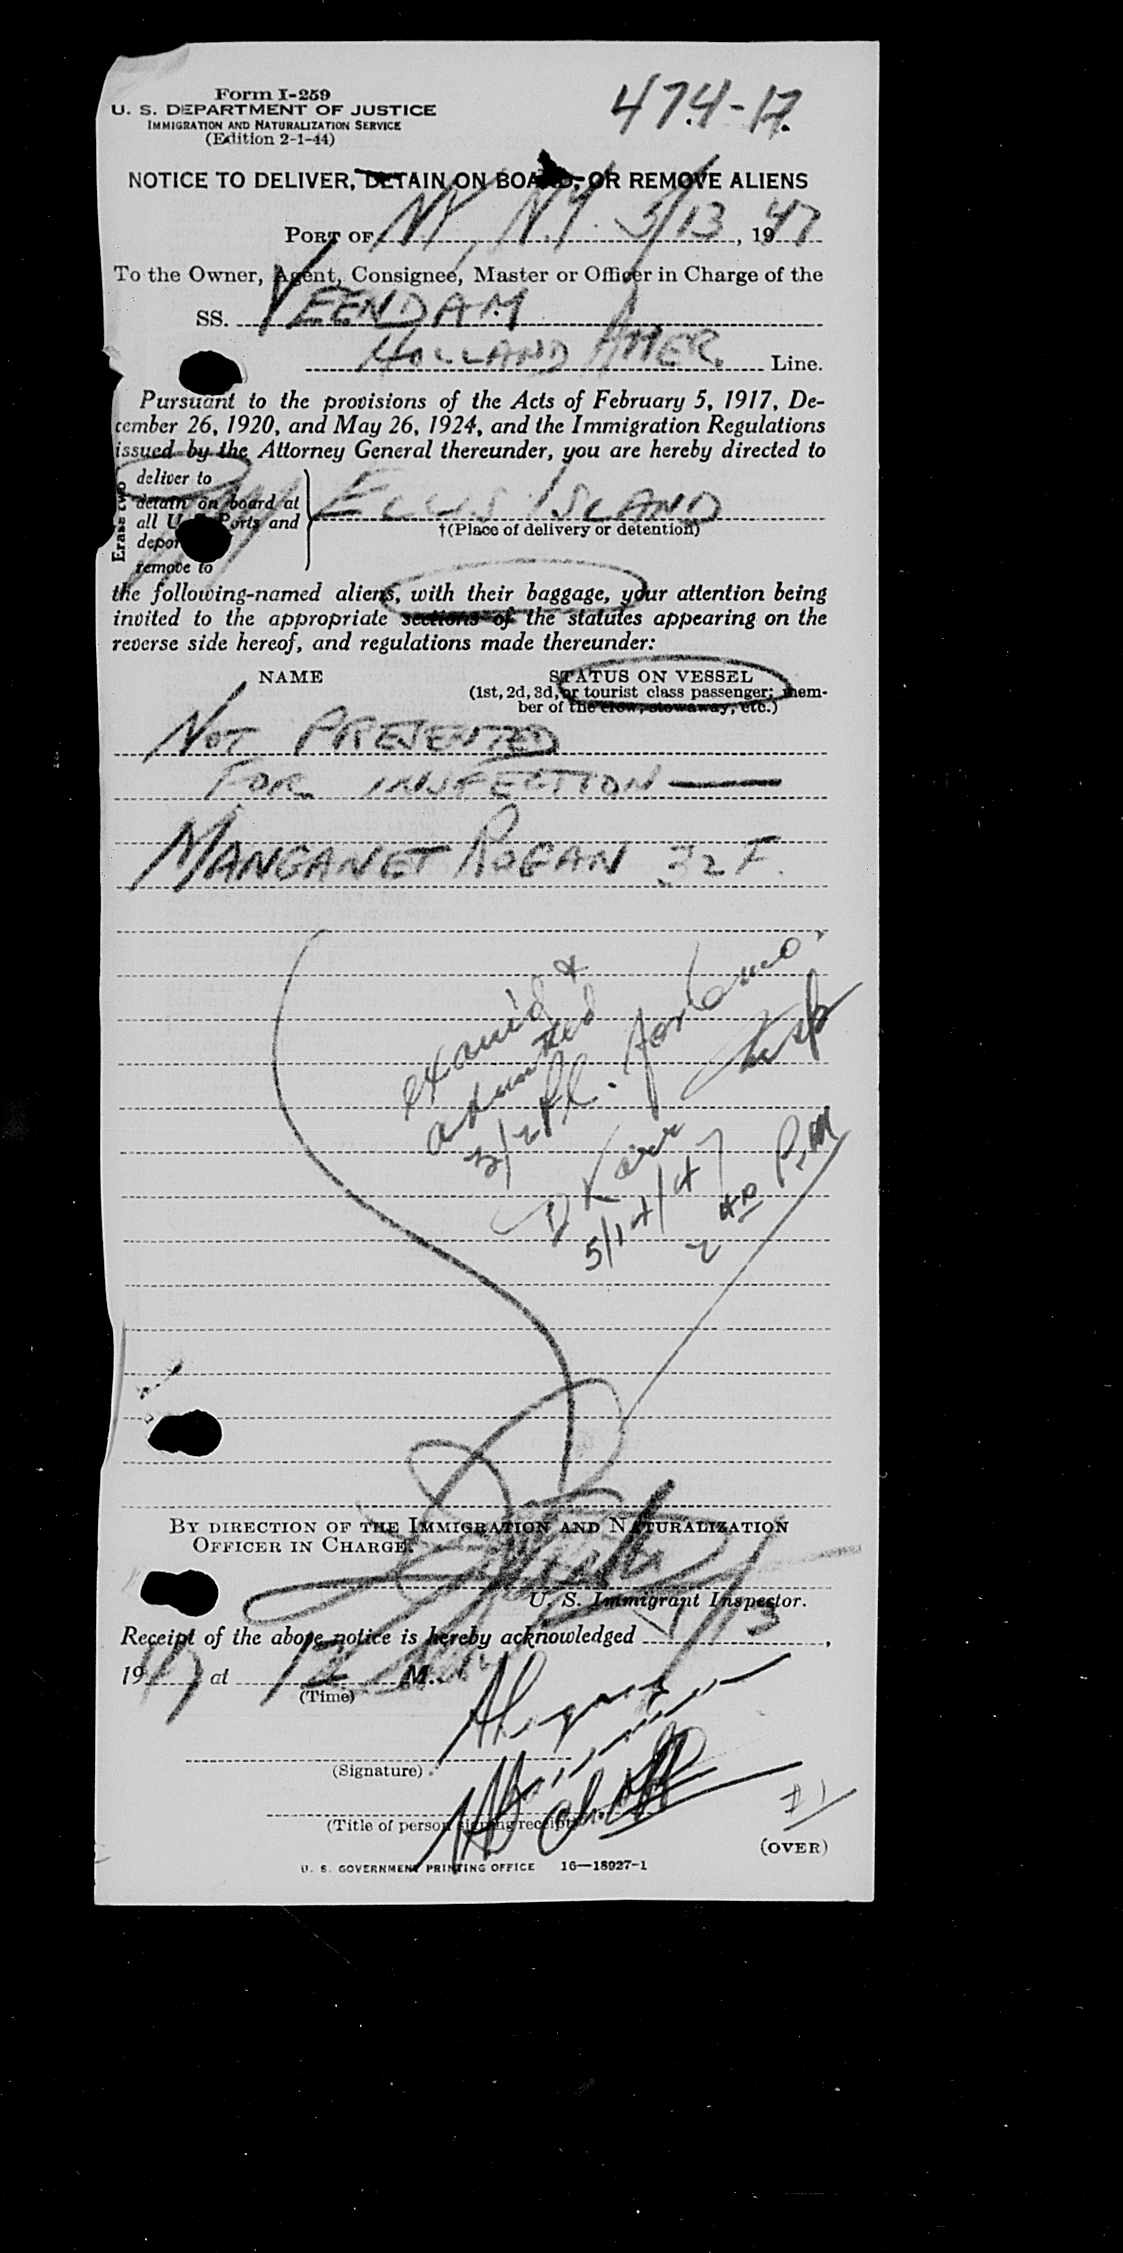 Form I-259
U. S. DEPARTMENT OF JUSTICE
IMMIGRATION AND NATURALIZATION SERVICE
(Edition 2-1-44)
474-17.
NOTICE TO DELIVER, DETAIN ON BOARD, OR REMOVE ALIENS
PORT OF NY, N.Y. 5/13, 1947
To the Owner, Agent, Consignee, Master or Officer in Charge of the
SS. VEENDAM
HOLLAND AMER. Line.
Pursuant to the provisions of the Acts of February 5, 1917, De-
cember 26, 1920, and May 26, 1924, and the Immigration Regulations
issued by the Attorney General thereunder, you are hereby directed to
Erase two
deliver to
detain on board at
all U. Ports and
depor
remove to
ELLIS ISLAND
†(Place of delivery or detention)
the following-named aliens, with their baggage, your attention being
invited to the appropriate sections of the statutes appearing on the
reverse side hereof, and regulations made thereunder:
NAME
STATUS ON VESSEL
(1st, 2d, 3d, or tourist class passenger; mem-
ber of the crew, stowaway, etc.)
NOT PRESENTED
FOR INSPECTION —
MARGARET 32 F.
exam'd &
admitted
3/2
5/14/47
2 40 P.M
BY DIRECTION OF THE IMMIGRATION AND NATURALIZATION
OFFICER IN CHARGE.
U. S. Immigrant Inspector.
Receipt of the above notice is hereby acknowledged 5/13,
1947 at 12 M.
(Time)
(Signature)
(Title of person signing receipt)
#1
(OVER)
U. S. GOVERNMENT PRINTING OFFICE 16—18927-1